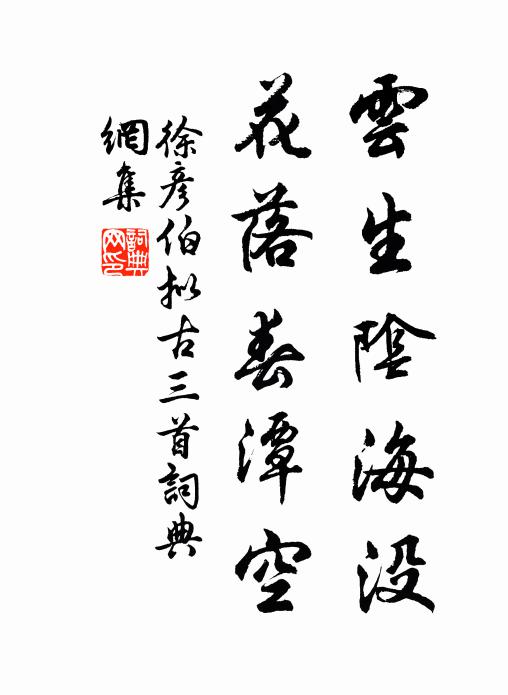 雲生陰海没
花落春潭空
徐彦伯拟古三首詞典
網集
詞典
网印